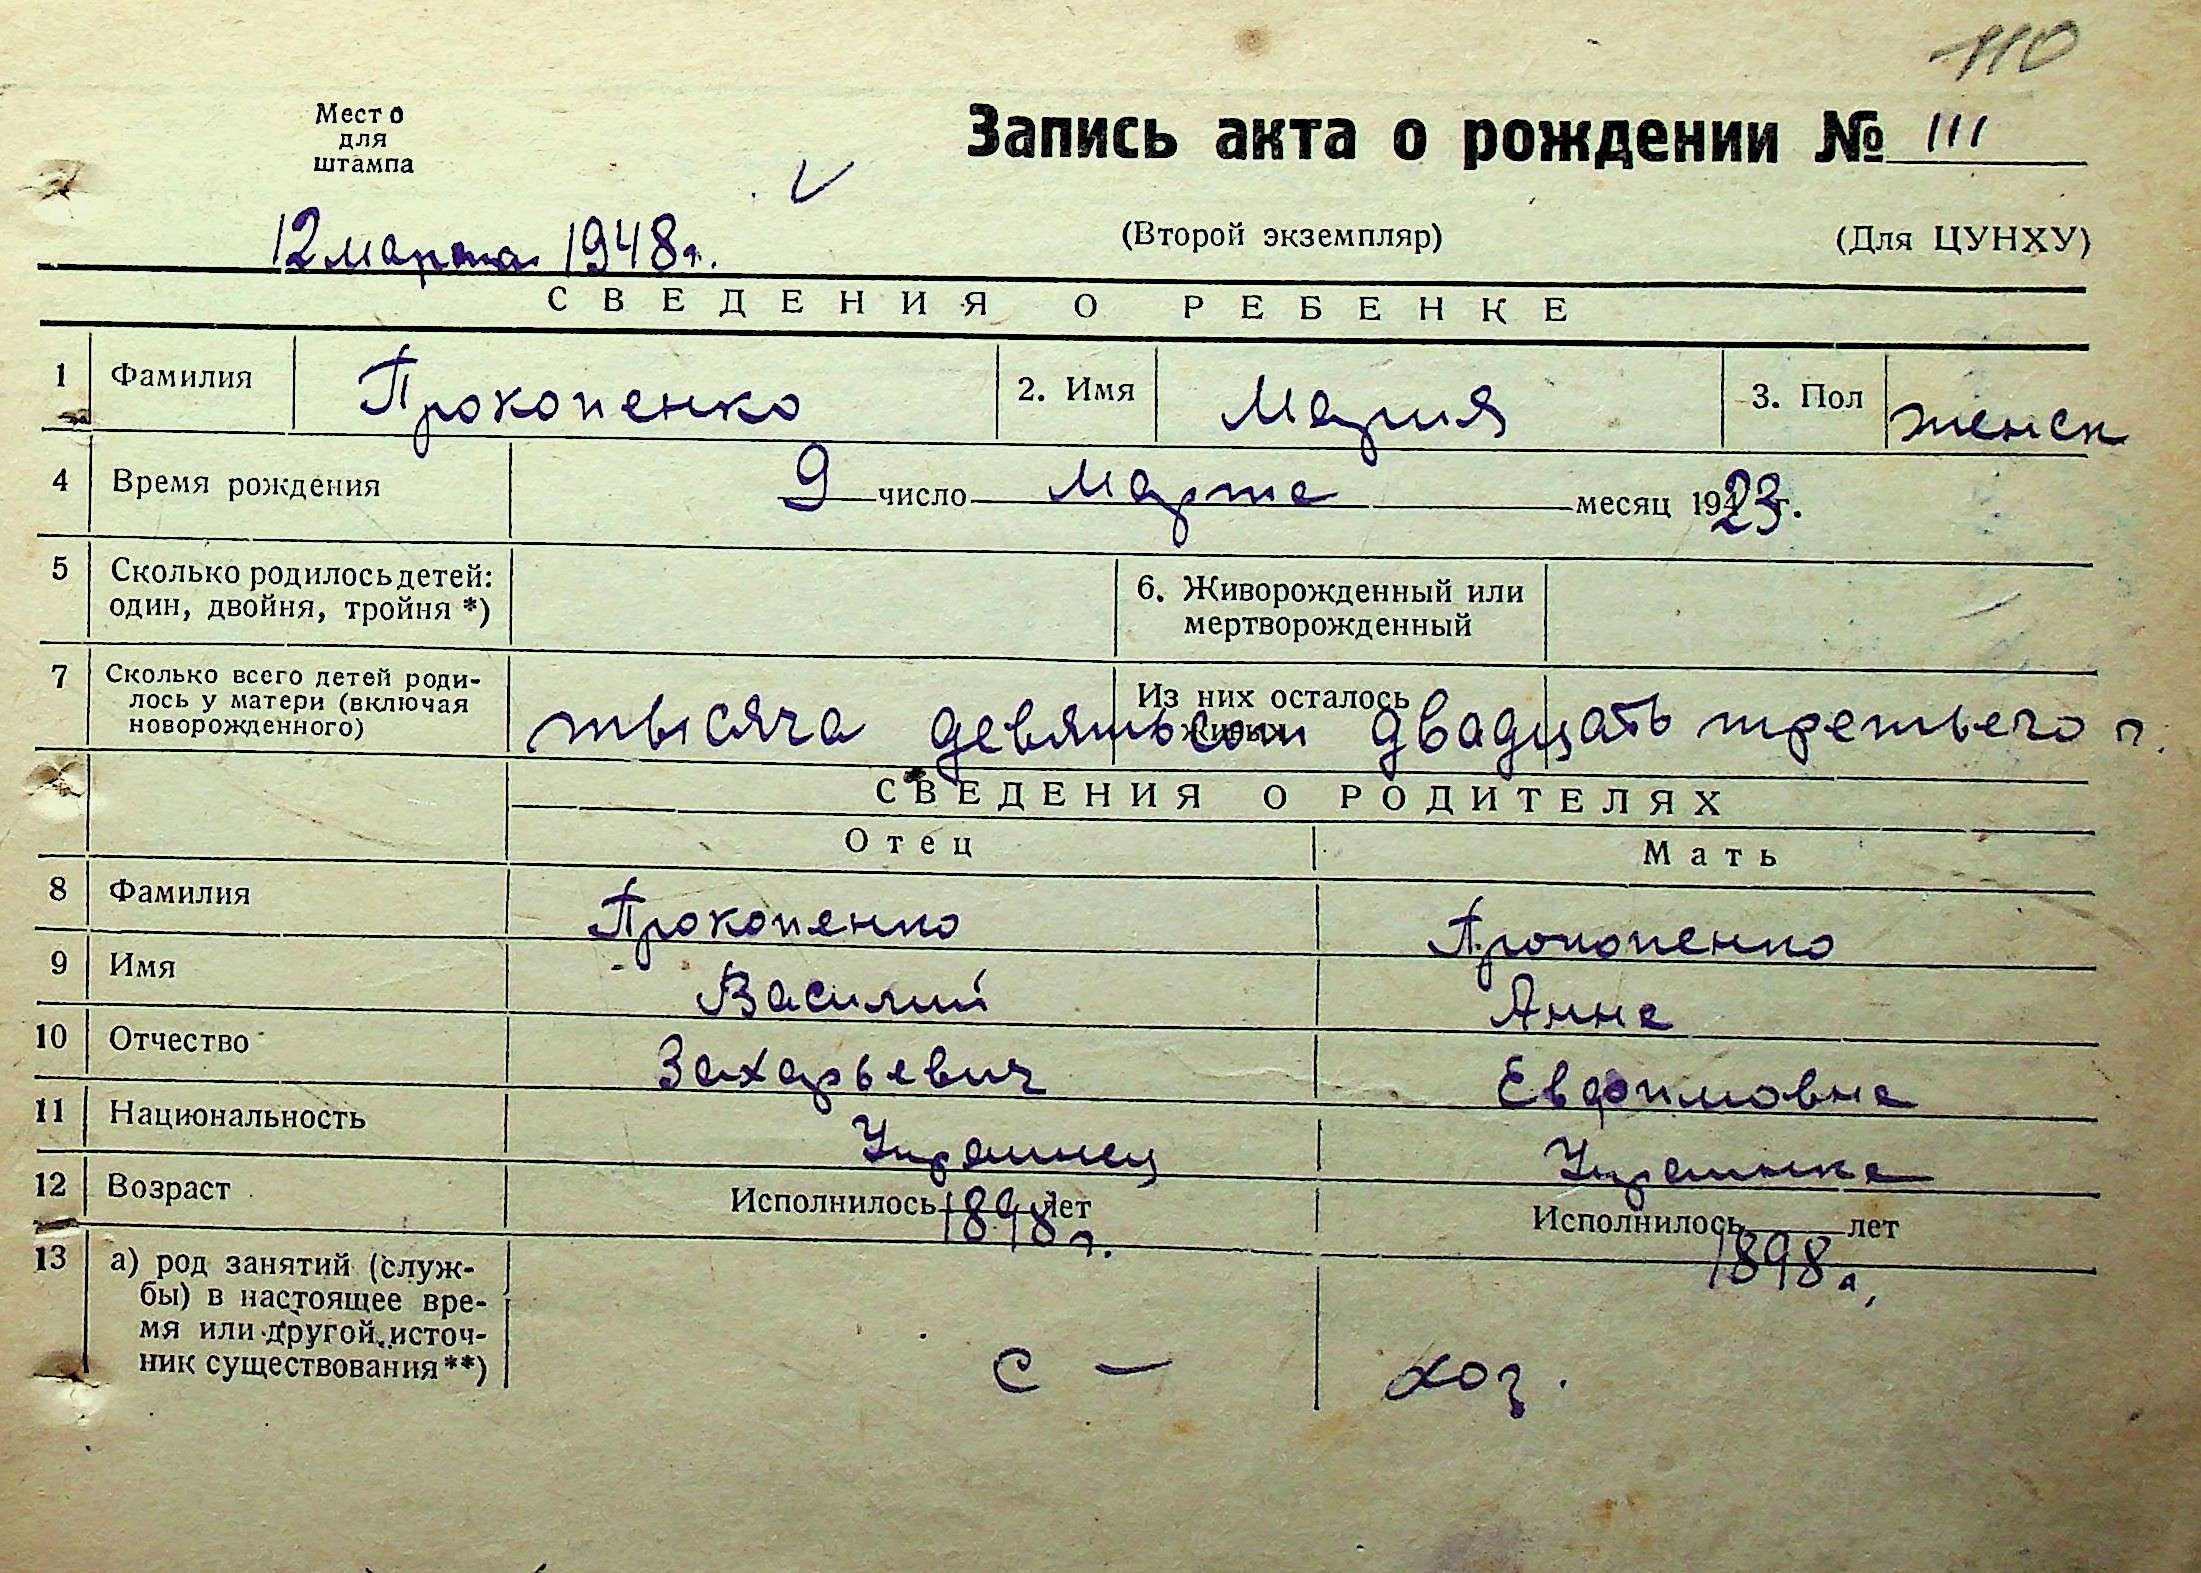 110
Место
для
штампа
Запись акта о рождении № 111
12 марта 1948 г.
(Второй экземпляр) (Для ЦУНХУ)
СВЕДЕНИЯ О РЕБЕНКЕ
1 Фамилия Прокопенко 2. Имя Мария 3. Пол женск
4 Время рождения 9 число марта месяц 1923 г.
5 Сколько родилось детей:
один, двойня, тройня *)
6. Живорожденный или
мертворожденный
7 Сколько всего детей роди-
лось у матери (включая
новорожденного)
Из них осталось
живых
тысяча девятьсот двадцать третьего г.
СВЕДЕНИЯ О РОДИТЕЛЯХ
Отец Мать
8 Фамилия Прокопенко Прокопенко
9 Имя Василий Анна
10 Отчество Захарьевич Евдокимовна
11 Национальность Украинец Украинка
12 Возраст Исполнилось 1898 г. лет Исполнилось 1898 г. лет
13 а) род занятий (служ-
бы) в настоящее вре-
мя или другой источ-
ник существования **)
с — хоз.